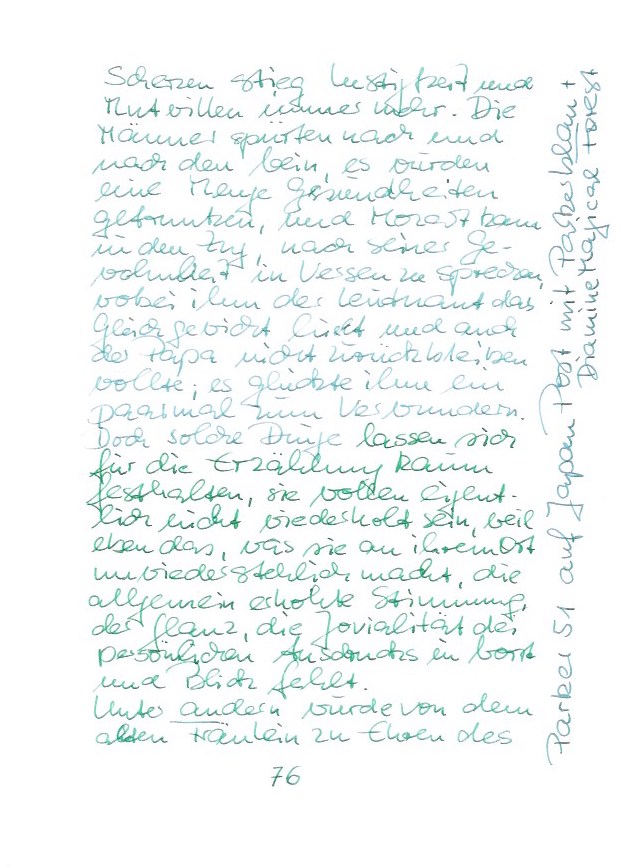 Scherzen stieg Lustigkeit und
Mutwillen immer mehr. Die
Männer spürten nach und
nach den Wein, es wurden
eine Menge Gesundheiten
getrunken, und Mozart kam
in den Zug, nach seiner Ge-
wohnheit in Versen zu sprechen,
wobei ihm der Leutnant das
Gleichgewicht hielt und auch
der Papa nicht zurückbleiben
wollte; es glückte ihm ein
paarmal zum Verwundern.
Doch solche Dinge lassen sich
für die Erzählung kaum
festhalten, sie wollen eigent-
lich nicht wiederholt sein, weil
eben das, was sie an ihrem Ort
unwiderstehlich macht, die
allgemein erhöhte Stimmung,
der Glanz, die Jovialität des
persönlichen Ausdrucks in Wort
und Blick fehlt.
Unter andern wurde von dem
alten Fräulein zu Ehren des
76
Parker 51 auf Japan Post mit +
Diamine Magical Forest